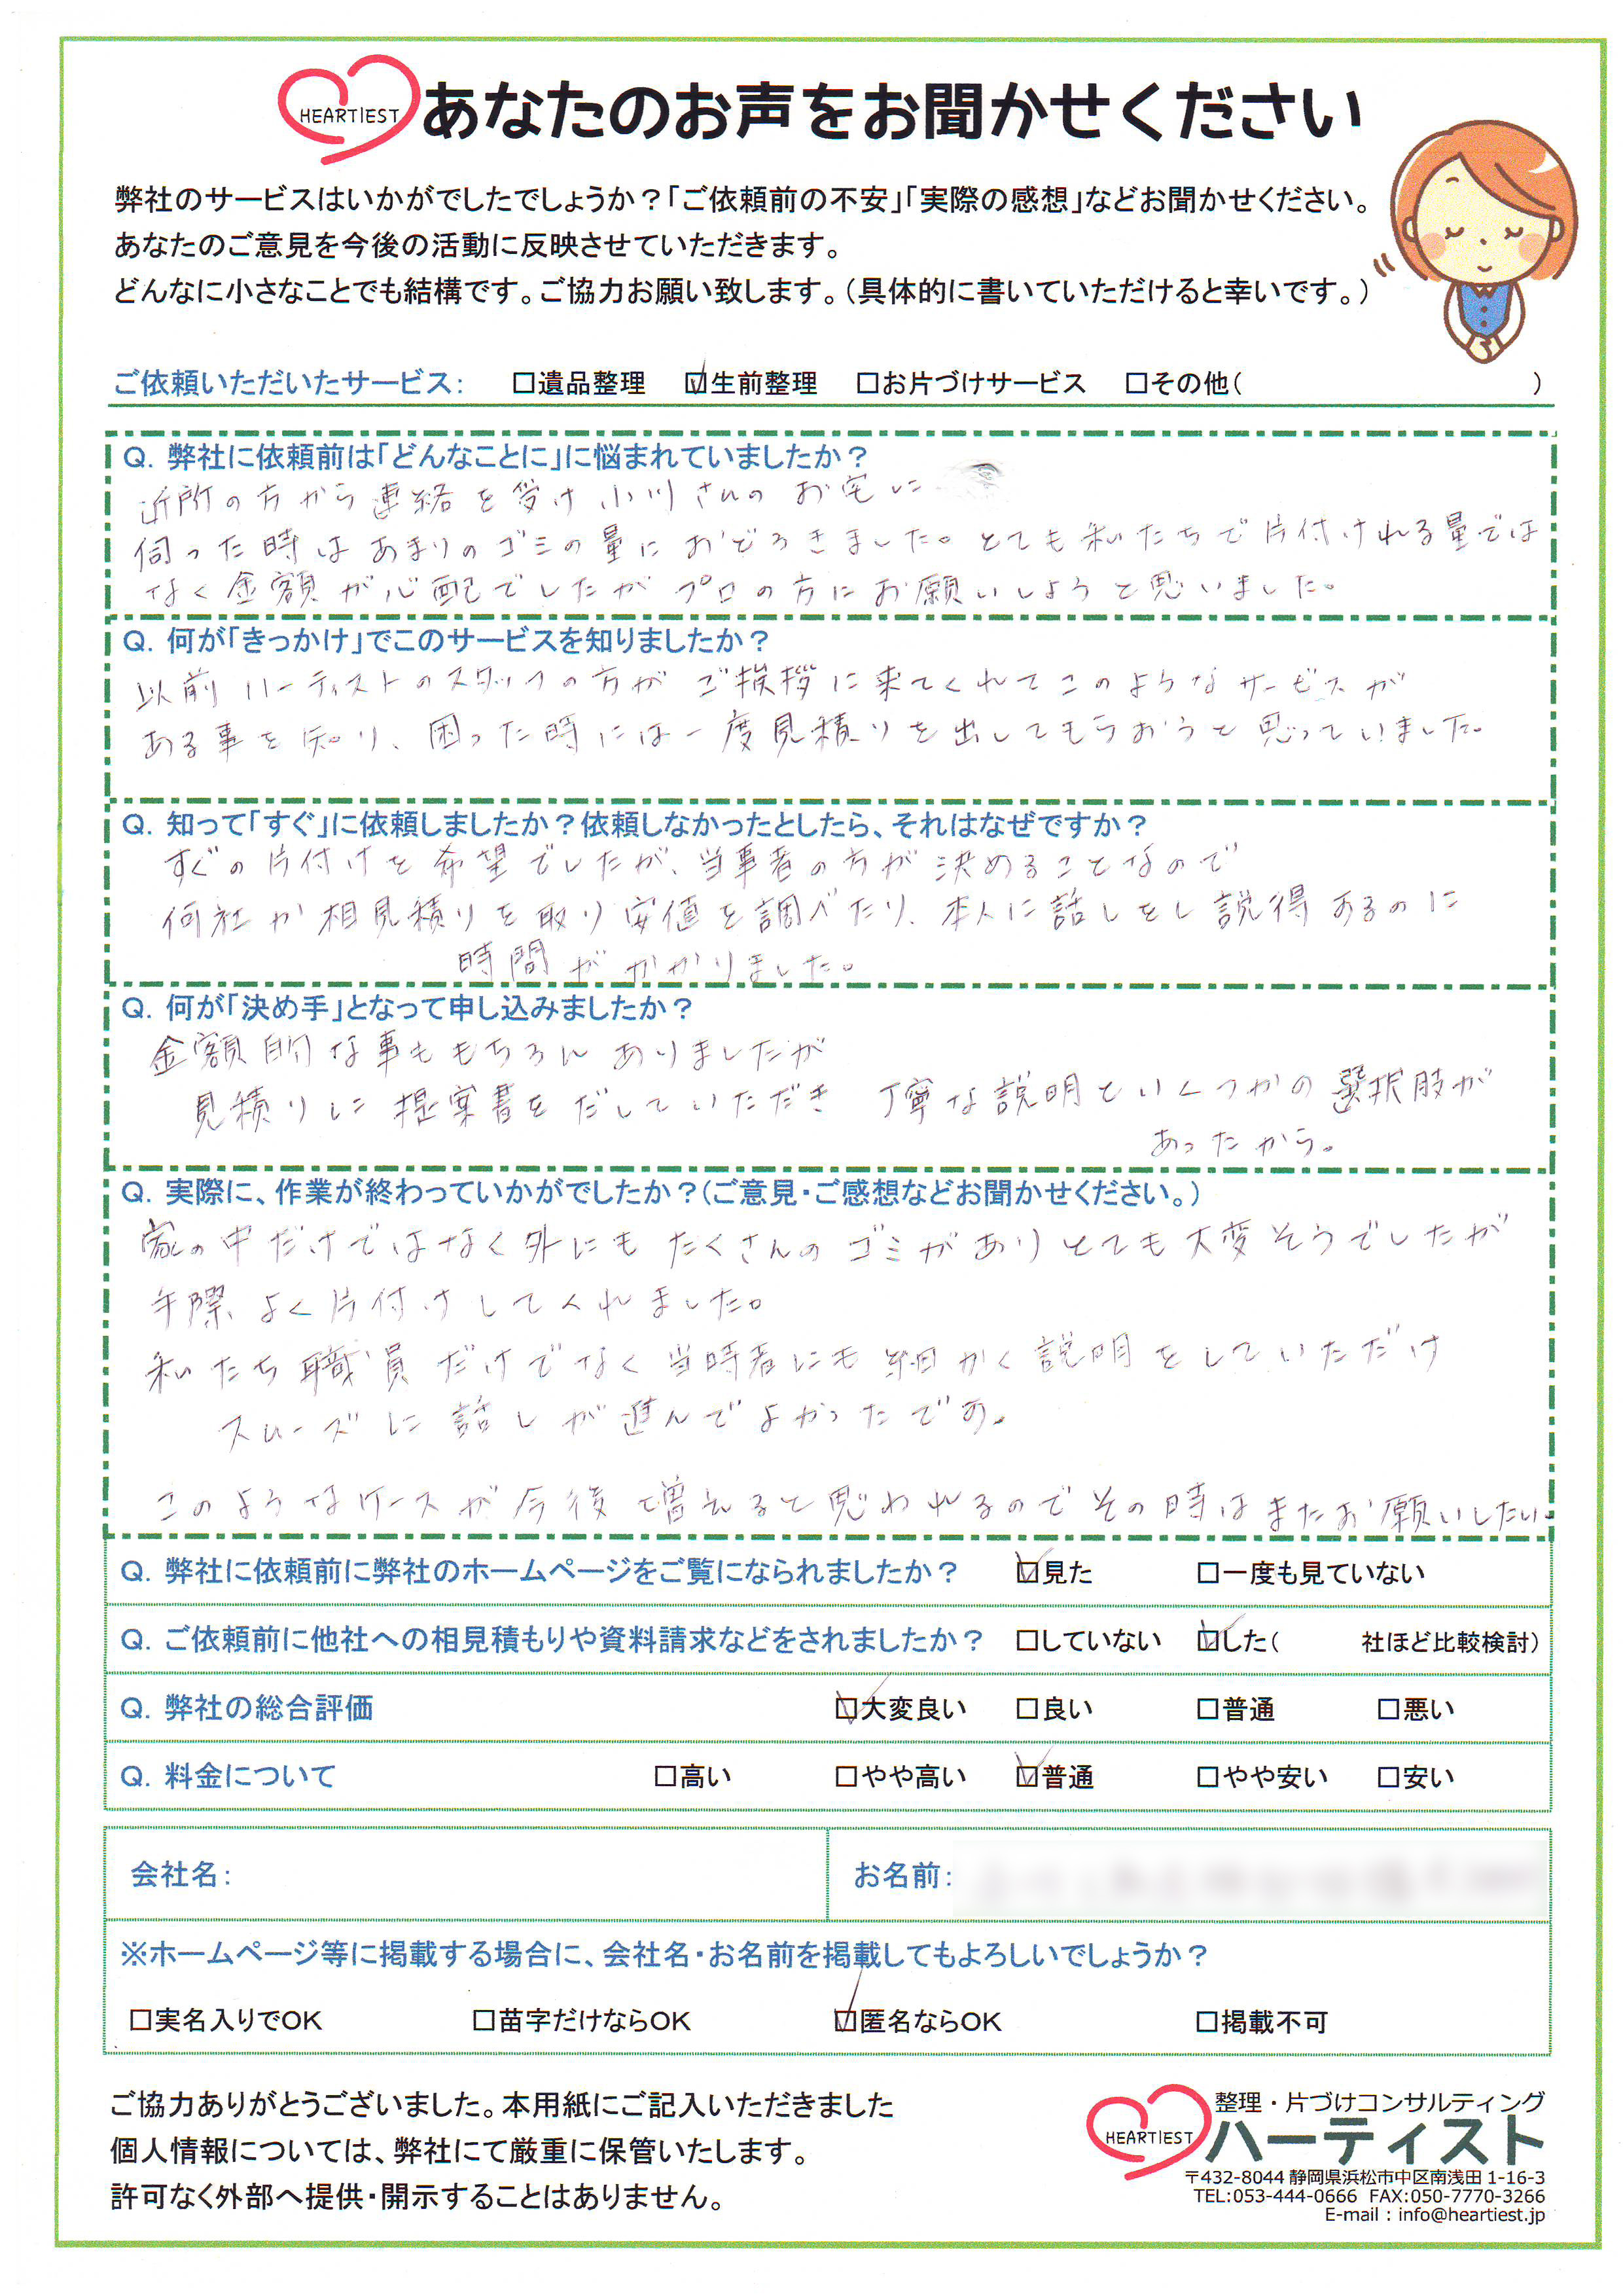 HEARTIEST あなたのお声をお聞かせください
弊社のサービスはいかがでしたでしょうか？「ご依頼前の不安」「実際の感想」などお聞かせください。
あなたのご意見を今後の活動に反映させていただきます。
どんなに小さなことでも結構です。ご協力お願い致します。（具体的に書いていただけると幸いです。）
ご依頼いただいたサービス： □遺品整理 ☑生前整理 □お片づけサービス □その他（ ）
Q. 弊社に依頼前は「どんなことに」に悩まれていましたか？
近所の方から連絡を受け小川さんのお宅に
伺った時はあまりのゴミの量におどろきました。とても私たちで片付けれる量では
なく金額が心配でしたがプロの方にお願いしようと思いました。
Q. 何が「きっかけ」でこのサービスを知りましたか？
以前ハーティストのスタッフの方がご挨拶に来てくれてこのようなサービスが
ある事を知り、困った時には一度見積りを出してもらおうと思っていました。
Q. 知って「すぐ」に依頼しましたか？依頼しなかったとしたら、それはなぜですか？
すぐの片付けを希望でしたが、当事者の方が決めることなので
何社か相見積りを取り安値を調べたり、本人に話しをし説得あるのに
時間がかかりました。
Q. 何が「決め手」となって申し込みましたか？
金額的な事ももちろんありましたが
見積りに提案書をだしていただき 丁寧な説明といくつかの選択肢が
あったから。
Q. 実際に、作業が終わっていかがでしたか？（ご意見・ご感想などお聞かせください。）
家の中だけではなく外にもたくさんのゴミがありとても大変そうでしたが
手際よく片付けしてくれました。
私たち職員だけでなく当時者にも細かく説明をしていただけ
スムーズに話しが進んでよかったです。
このようなケースが今後増えると思われるのでその時はまたお願いしたい。
Q. 弊社に依頼前に弊社のホームページをご覧になられましたか？ ☑見た □一度も見ていない
Q. ご依頼前に他社への相見積もりや資料請求などをされましたか？ □していない ☑した（ 社ほど比較検討）
Q. 弊社の総合評価 ☑大変良い □良い □普通 □悪い
Q. 料金について □高い □やや高い ☑普通 □やや安い □安い
会社名： お名前：
※ホームページ等に掲載する場合に、会社名・お名前を掲載してもよろしいでしょうか？
□実名入りでOK □苗字だけならOK ☑匿名ならOK □掲載不可
ご協力ありがとうございました。本用紙にご記入いただきました
個人情報については、弊社にて厳重に保管いたします。
許可なく外部へ提供・開示することはありません。
整理・片づけコンサルティング
HEARTIEST ハーティスト
〒432-8044 静岡県浜松市中区南浅田 1-16-3
TEL:053-444-0666 FAX:050-7770-3266
E-mail : info@heartiest.jp